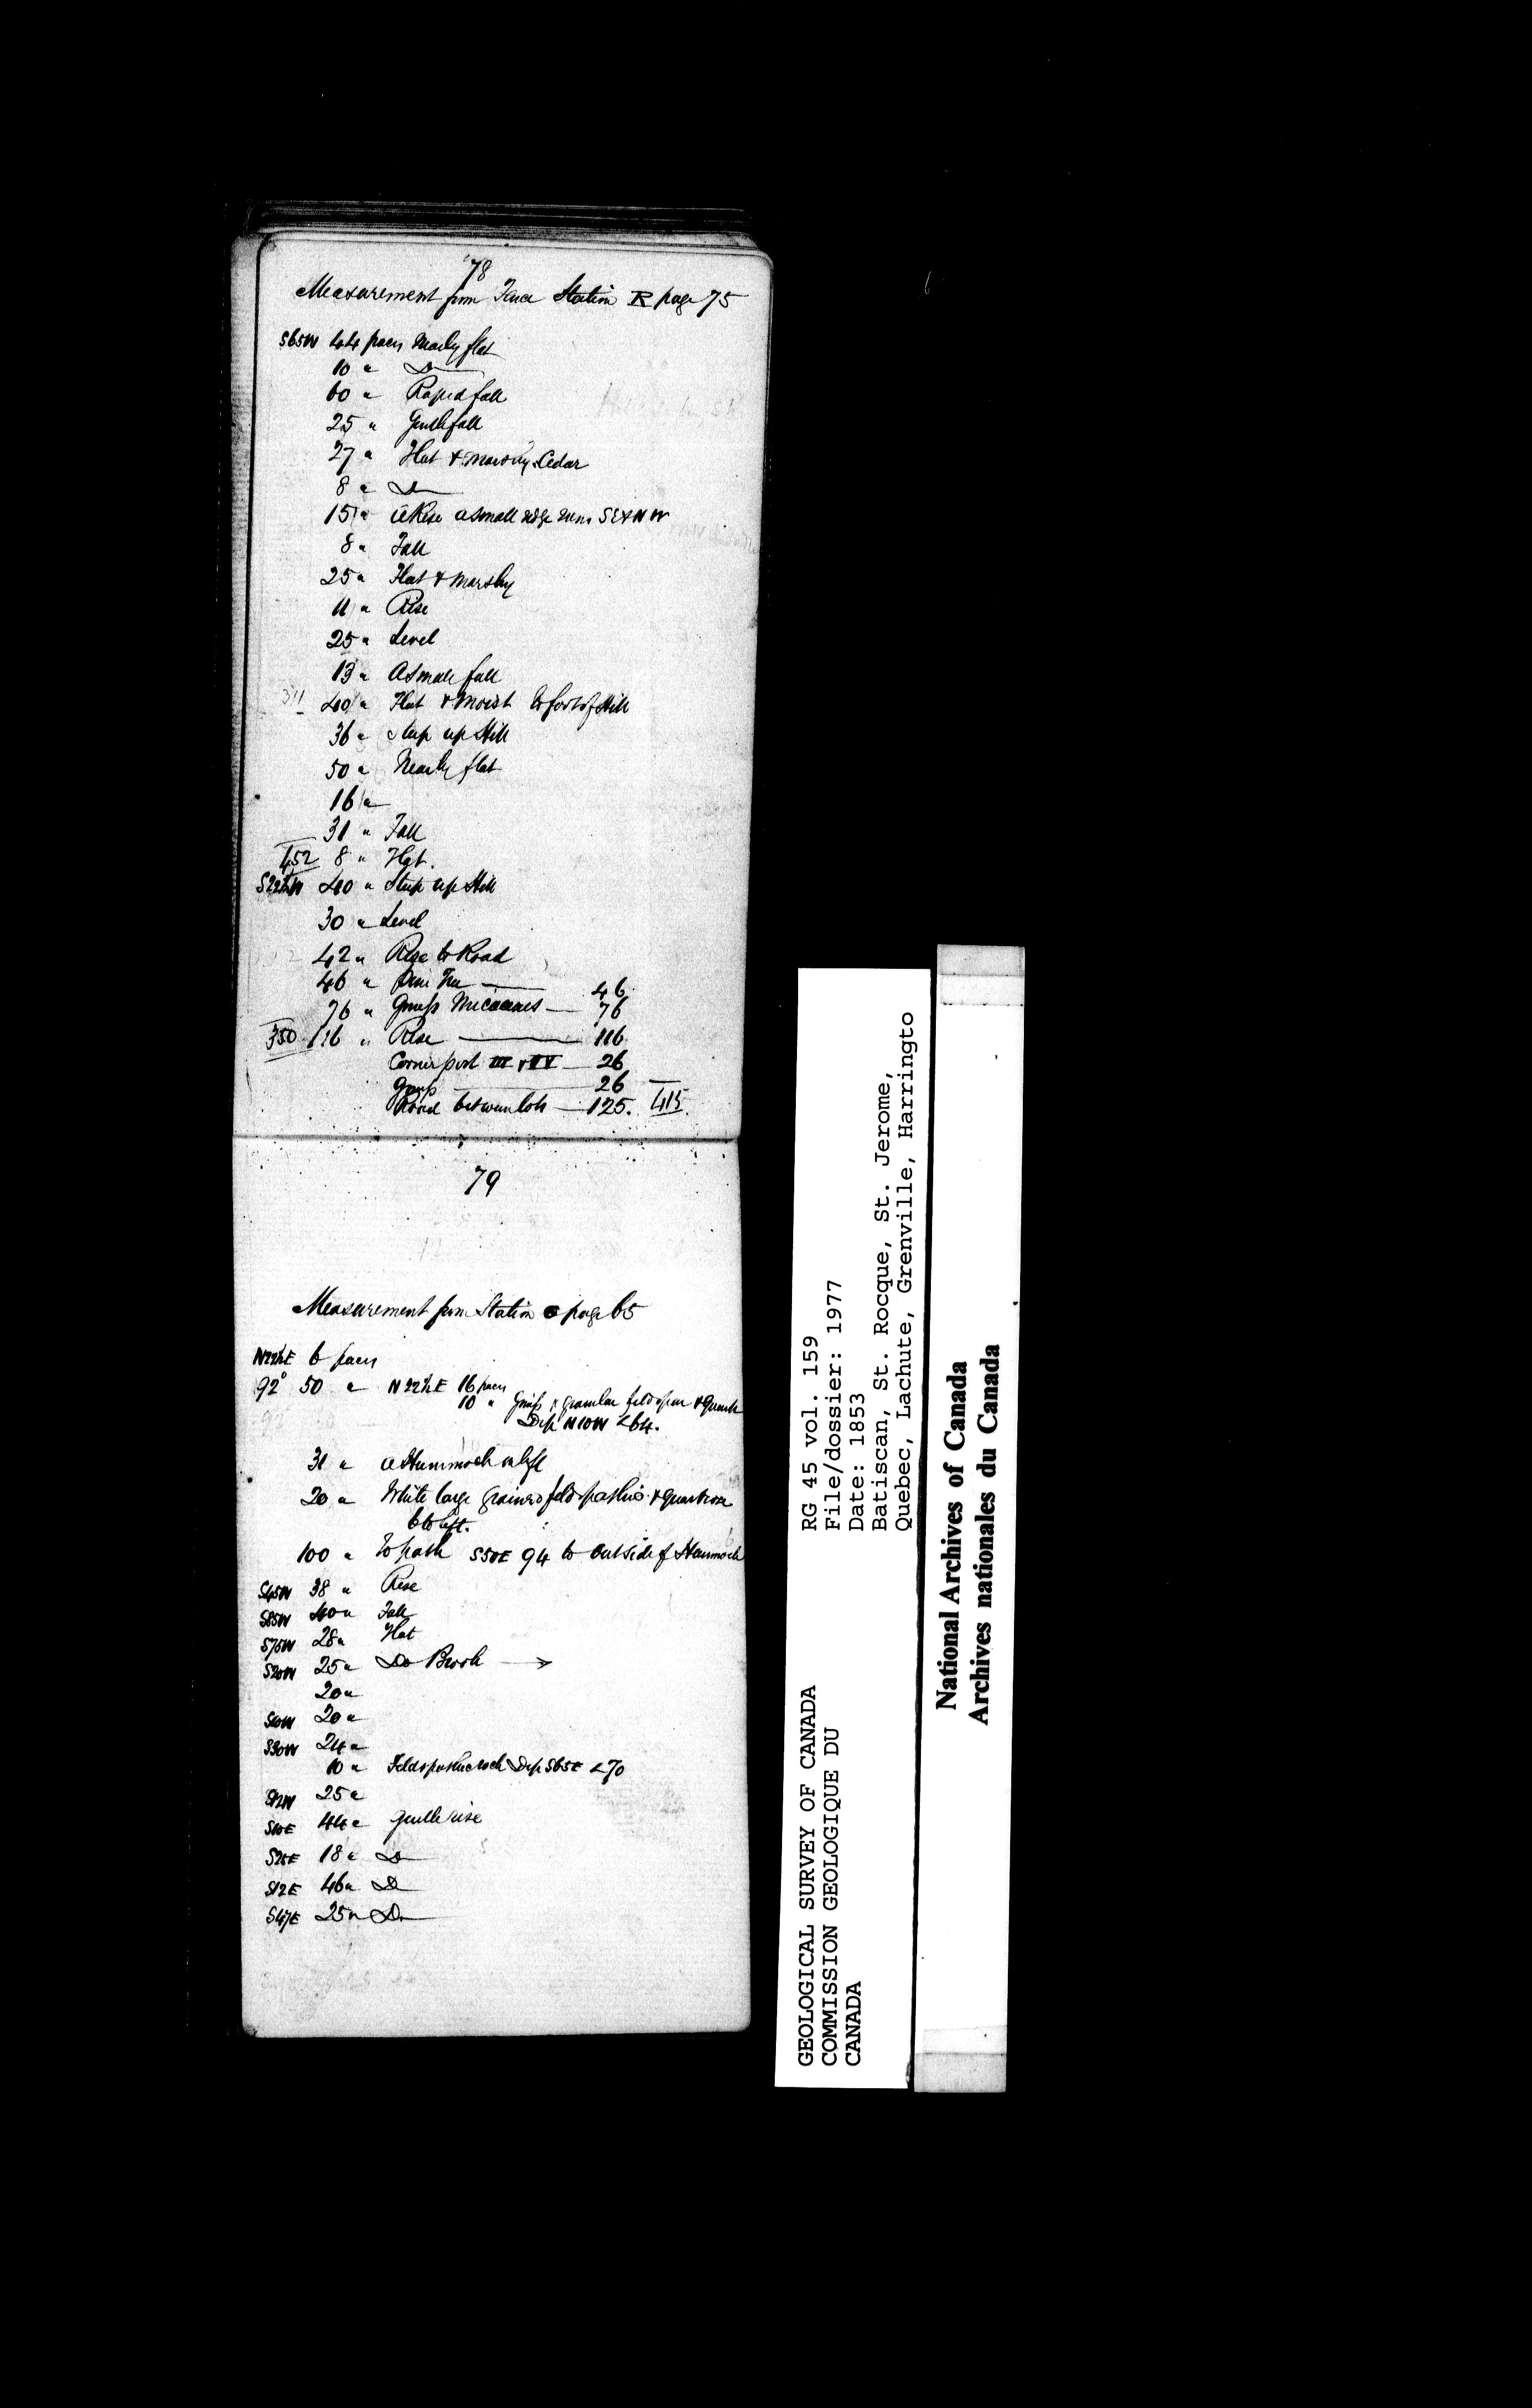 78
Measurement from Fence Station R page 75
S65W 44 paces Nearly flat
10 " Do
60 " Rapid fall
25 " Gentle fall
27 " Flat & marshy. Cedar
8 " Do
15 " a Rise a small ridge runs SE & NW
8 " Fall
25 " Flat & marshy
11 " Rise
25 " Level
13 " A small fall
311 40 " Flat & moist to foot of Hill
36 " Steep up Hill
50 " Nearly flat
16 "
31 " Fall
452 8 " Flat.
S22½W 40 " Steep up Hill
30 " Level
42 " Rise to Road
46 " Pine Tree — 46
76 " Gneiss Micaceous — 76
350 116 " Rise — 116
Corner post III & IV — 26
Gneiss — 26
Road between lots — 125. 415.
79
Measurement from Station page 65
N22½E 6 paces
92° 50 " N22½E 16 paces
10 " Gneiss & granular feldspar & Quartz
Dip N10W <64.
31 " a Hummock on left
20 " White large grained feldspathic & quartzose
6 to left.
100 " To path S50E 94 to outside of Hummock
S45W 38 " Rise
S85W 40 " Fall
S75W 28 " Flat
S20W 25 " Do Brook →
20 "
S60W 20 "
S30W 24 "
10 " Feldspathic rock Dip S65E <70
S12W 25 "
S10E 44 " Gentle rise
S25E 18 " Do
S12E 46 " Do
S47E 25 " Do
GEOLOGICAL SURVEY OF CANADA
COMMISSION GEOLOGIQUE DU
CANADA
RG 45 vol. 159
File/dossier: 1977
Date: 1853
Batiscan, St. Rocque, St. Jerome,
Quebec, Lachute, Grenville, Harringto
National Archives of Canada
Archives nationales du Canada